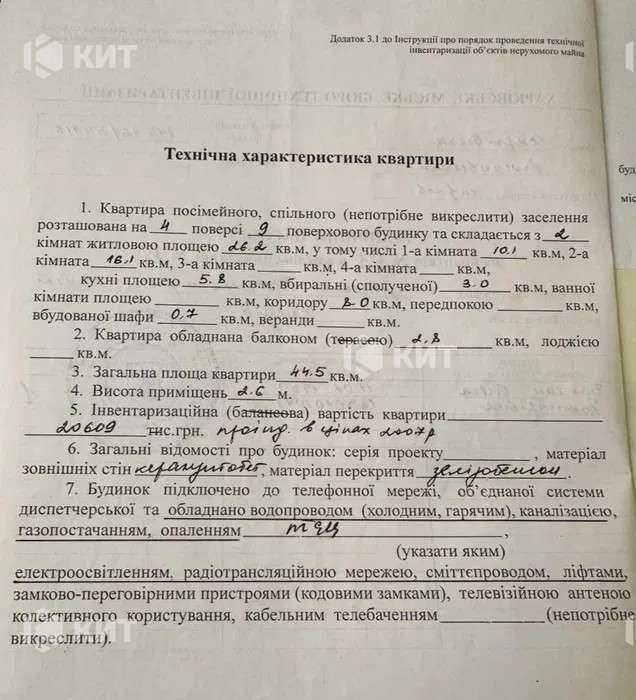 КИТ
Додаток 3.1 до Інструкції про порядок проведення технічної
інвентаризації об'єктів нерухомого майна
ХАРКІВСЬКЕ МІСЬКЕ БЮРО ТЕХНІЧНОЇ ІНВЕНТАРИЗАЦІЇ
Технічна характеристика квартири
буд
міс
1. Квартира посімейного, спільного (непотрібне викреслити) заселення
розташована на 4 поверсі 9 поверхового будинку та складається з 2
кімнат житловою площею 26.2 кв.м, у тому числі 1-а кімната 10.1 кв.м, 2-а
кімната 16.1 кв.м, 3-а кімната______ кв.м, 4-а кімната_____ кв.м,
кухні площею 5.8 кв.м, вбиральні (сполученої) 3.0 кв.м, ванної
кімнати площею _________ кв.м, коридору 8.0 кв.м, передпокою _________ кв.м,
вбудованої шафи 0.7 кв.м, веранди ______ кв.м.
2. Квартира обладнана балконом (терасею) 2.8 кв.м, лоджією
______ кв.м.
КИТ
3. Загальна площа квартири 44.5 кв.м.
4. Висота приміщень 2.6 м.
5. Інвентаризаційна (балансова) вартість квартири
20609 тис.грн. в цінах 2007р
6. Загальні відомості про будинок: серія проекту___________, матеріал
зовнішніх стін керамзитобет, матеріал перекриття залізобетон.
7. Будинок підключено до телефонної мережі, об'єднаної системи
диспетчерської та обладнано водопроводом (холодним, гарячим), каналізацією,
газопостачанням, опаленням ТЕЦ,
(указати яким)
електроосвітленням, радіотрансляційною мережею, сміттєпроводом, ліфтами,
замково-переговірними пристроями (кодовими замками), телевізійною антеною
колективного користування, кабельним телебаченням_____________(непотрібне
викреслити).
КИТ
КИТ